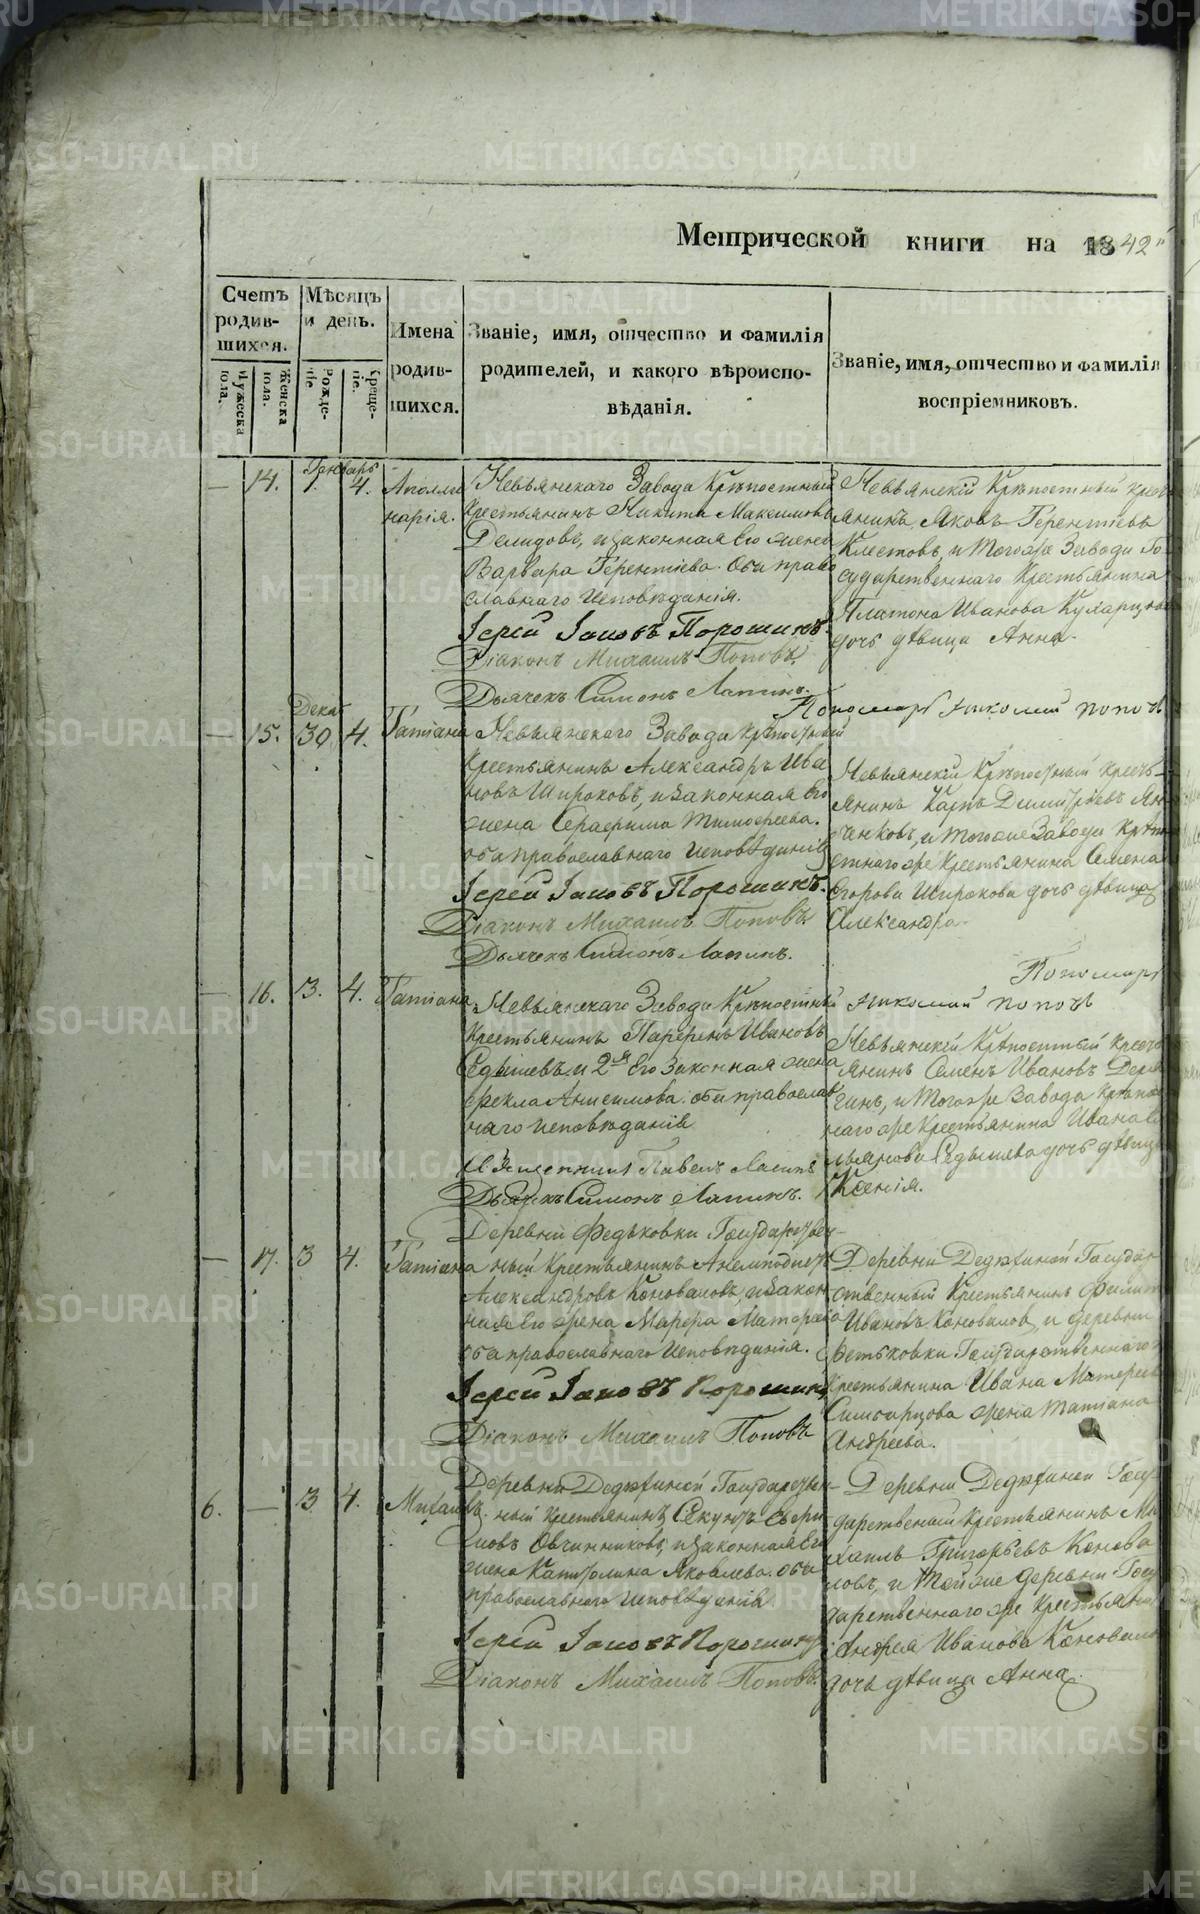 METRIKI.GASO-URAL.RU
Метрической книги на 1842
Счетъ родив-шихся.
Мѣсяцъ и день.
Имена родив-шихся.
Званіе, имя, отчество и фамилія
родителей, и какого вѣроиспо-
вѣданія.
Званіе, имя, отчество и фамилія
воспріемниковъ.
Мужеска пола.
Женска пола.
Рожде-ніе.
Креще-ніе.
Генварь
— 14. 1. 4. Аполли
нарія.
Невьянскаго Завода Крѣпостный
Крестьянинъ Никита Максимовъ
Демидовъ, и законная Его жена
Варвара Терентіева. Оба право
славнаго Исповѣданія.
Іерей Іаковъ Порошинъ.
Діаконъ Михаилъ Поповъ
Дьячекъ Симонъ Лапинъ.
Пономарь Николай Поповъ
Невьянскій Крѣпостный крест
янинъ Яковъ Терентіевъ
Клестовъ, и тогоже Завода Го
сударственнаго Крестьянина
Платона Иванова
дочь дѣвица Анна.
Декаб
— 15. 30 4. Татіана
Невьянскаго Завода крѣпостный
Крестьянинъ Александръ Ива
новъ Широковъ, и законная Его
жена Серафима Тимофеева.
оба православнаго исповѣданія
Іерей Іаковъ Порошинъ.
Діаконъ Михаилъ Поповъ
Дьячекъ Симонъ Лапинъ.
Невьянскій Крѣпостный крестъ-
янинъ Карпъ Димитріевъ
и тогоже Завода Крѣпо
стнагоже Крестьянина Семена
Егорова Широкова дочь дѣвица
Александра.
Пономарь
Николай Поповъ
— 16. 3. 4. Татіана
Невьянскаго Завода Крѣпостный
Крестьянинъ Парфенъ Ивановъ
Седышевъ и 2я Его Законная жена
Фекла Анисимова. оба православ
наго исповѣданія
Священникъ Павелъ Лапинъ
Дьячекъ Симонъ Лапинъ.
Невьянскій Крѣпостный крестъ
янинъ Семенъ Ивановъ
и тогоже Завода крѣпост
нагоже Крестьянина Ивана
Седышева дочь дѣвица
Ксенія.
— 17. 3 4. Татіана
Деревни Федьковки Государствен-
ный Крестьянинъ Анемподистъ
Александровъ Коноваловъ, и закон
ная Его жена Марфа Матфеева
оба православнаго Исповѣданія.
Іерей Іаковъ Порошинъ
Діаконъ Михаилъ Поповъ
Деревни Дедюхиной Государ
ственный Крестьянинъ Филипъ
Ивановъ Коноваловъ, и деревни
Фетьковки Государственнаго
Крестьянина Ивана Матфеева
жена Татіана
Андреева.
6. — 3 4. Михаилъ
Деревни Дедюхиной Государствен-
ный Крестьянинъ
Овчинниковъ, и законная Его
жена Капитолина Яковлева. оба
православнаго исповѣданія.
Іерей Іаковъ Порошинъ
Діаконъ Михаилъ Поповъ.
Деревни Дедюхиной Госу-
дарственный Крестьянинъ Ми
хаилъ Григорьевъ Конова
ловъ, и Тойже деревни Госу
дарственнагоже Крестьяни
Андрея Иванова Коновалов
дочь дѣвица Анна.